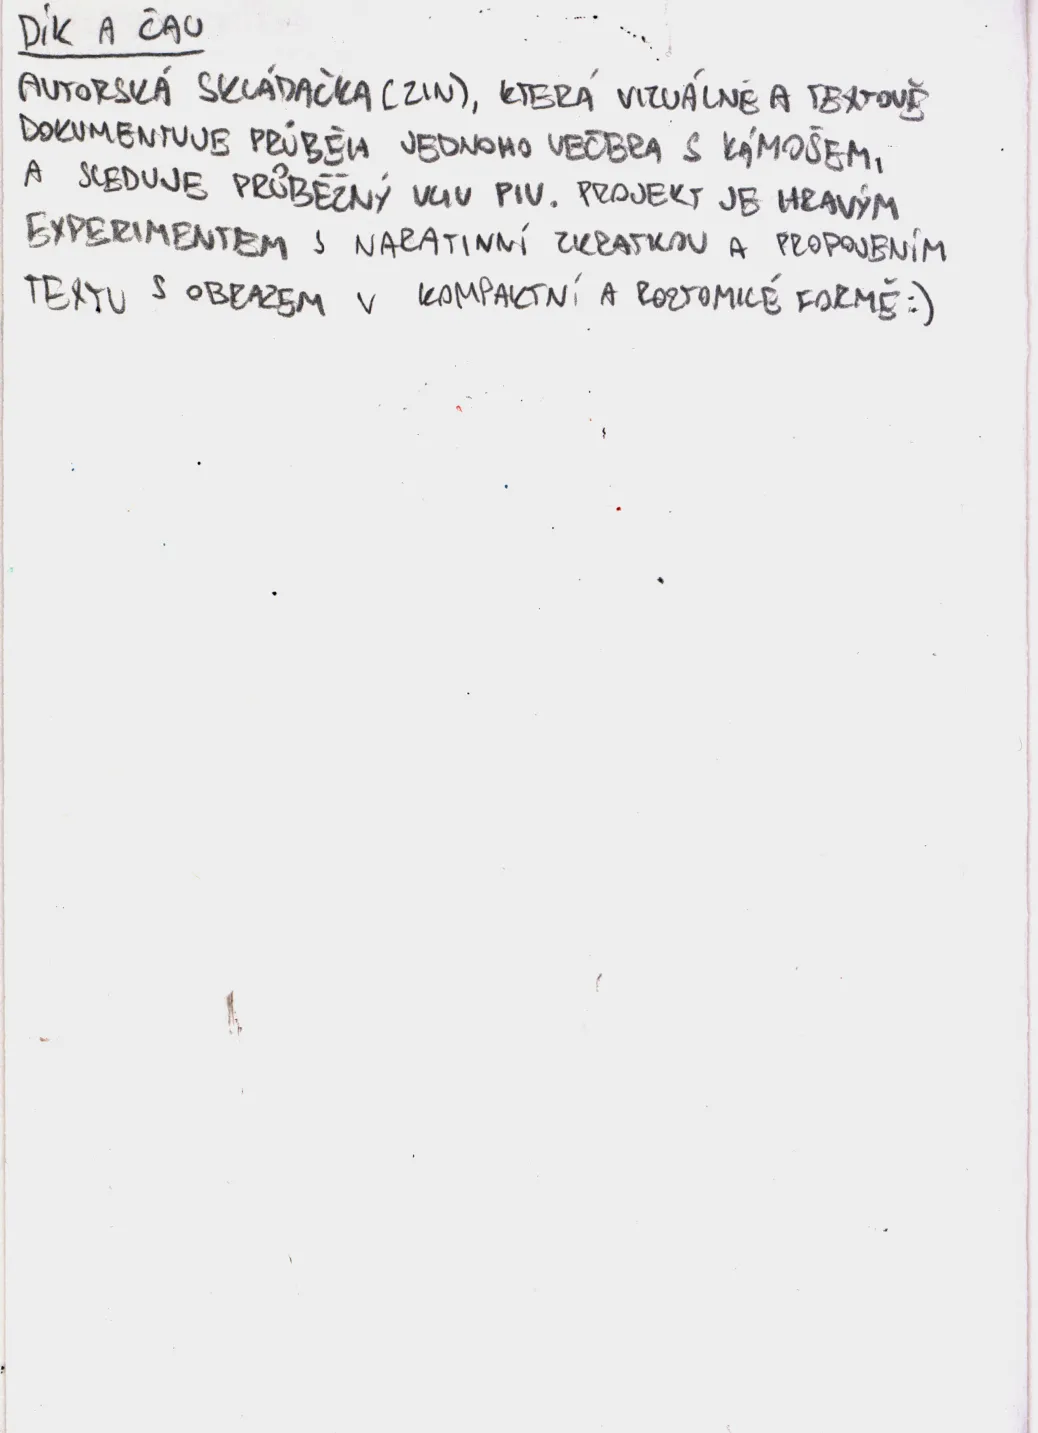 DÍK A ČAU
AUTORSKÁ SKLÁDAČKA (ZIN), KTERÁ VIZUÁLNĚ A TEXTOVĚ
DOKUMENTUJE PRŮBĚH JEDNOHO VEČERA S KÁMOŠEM,
A SLEDUJE PRŮBĚŽNÝ VLIV PIV. PROJEKT JE HRAVÝM
EXPERIMENTEM S NARATIVNÍ ZKRATKOU A PROPOJENÍM
TEXTU S OBRAZEM V KOMPAKTNÍ A ROZTOMILÉ FORMĚ :)